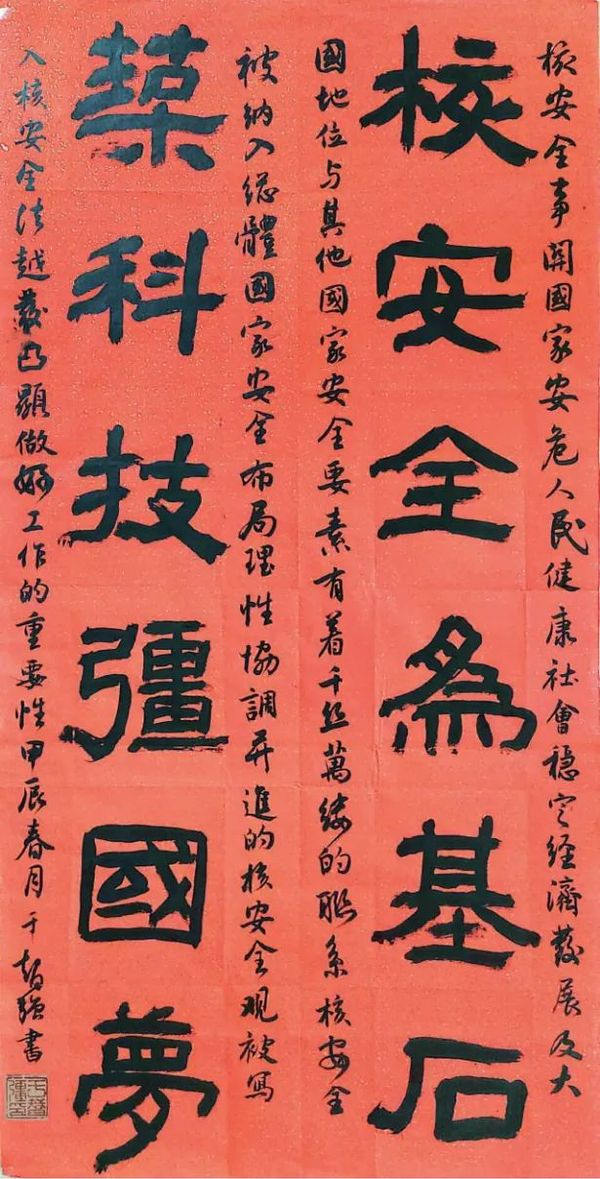 核安全事關國家安危人民健康社會穩定經濟發展及大
核安全為基石
國地位与其他國家安全要素有着千丝萬縷的联系核安全
被納入總體國家安全布局理性協調并進的核安全观被寫
築科技彊國夢
入核安全法越發凸顯做好工作的重要性甲辰春月 強書